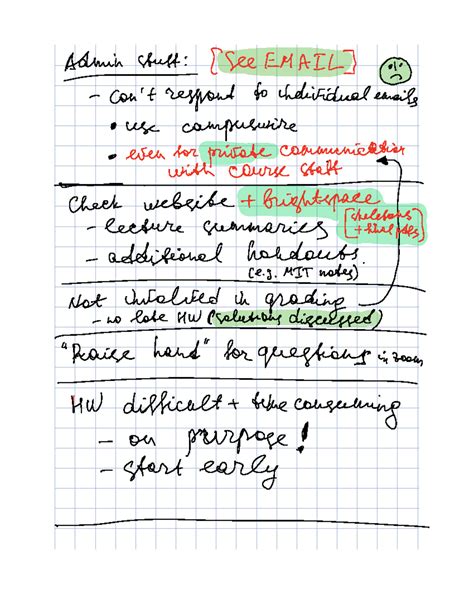 Admin stuff: [See EMAIL]
- Can't respond to individual emails
• use campuswire
• even for private communication
with course staff
Check website + brightspace
- lecture summaries [skeletons
+ filled
- additional handouts
(e.g. MIT notes)
Not involved in grading
- no late HW (solutions discussed)
"Raise hand" for questions in zoom
HW difficult + time consuming
- on purpose!
- start early